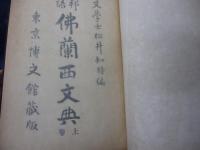 文學士松井知時編
邦語佛蘭西文典上卷
東京博文館藏版